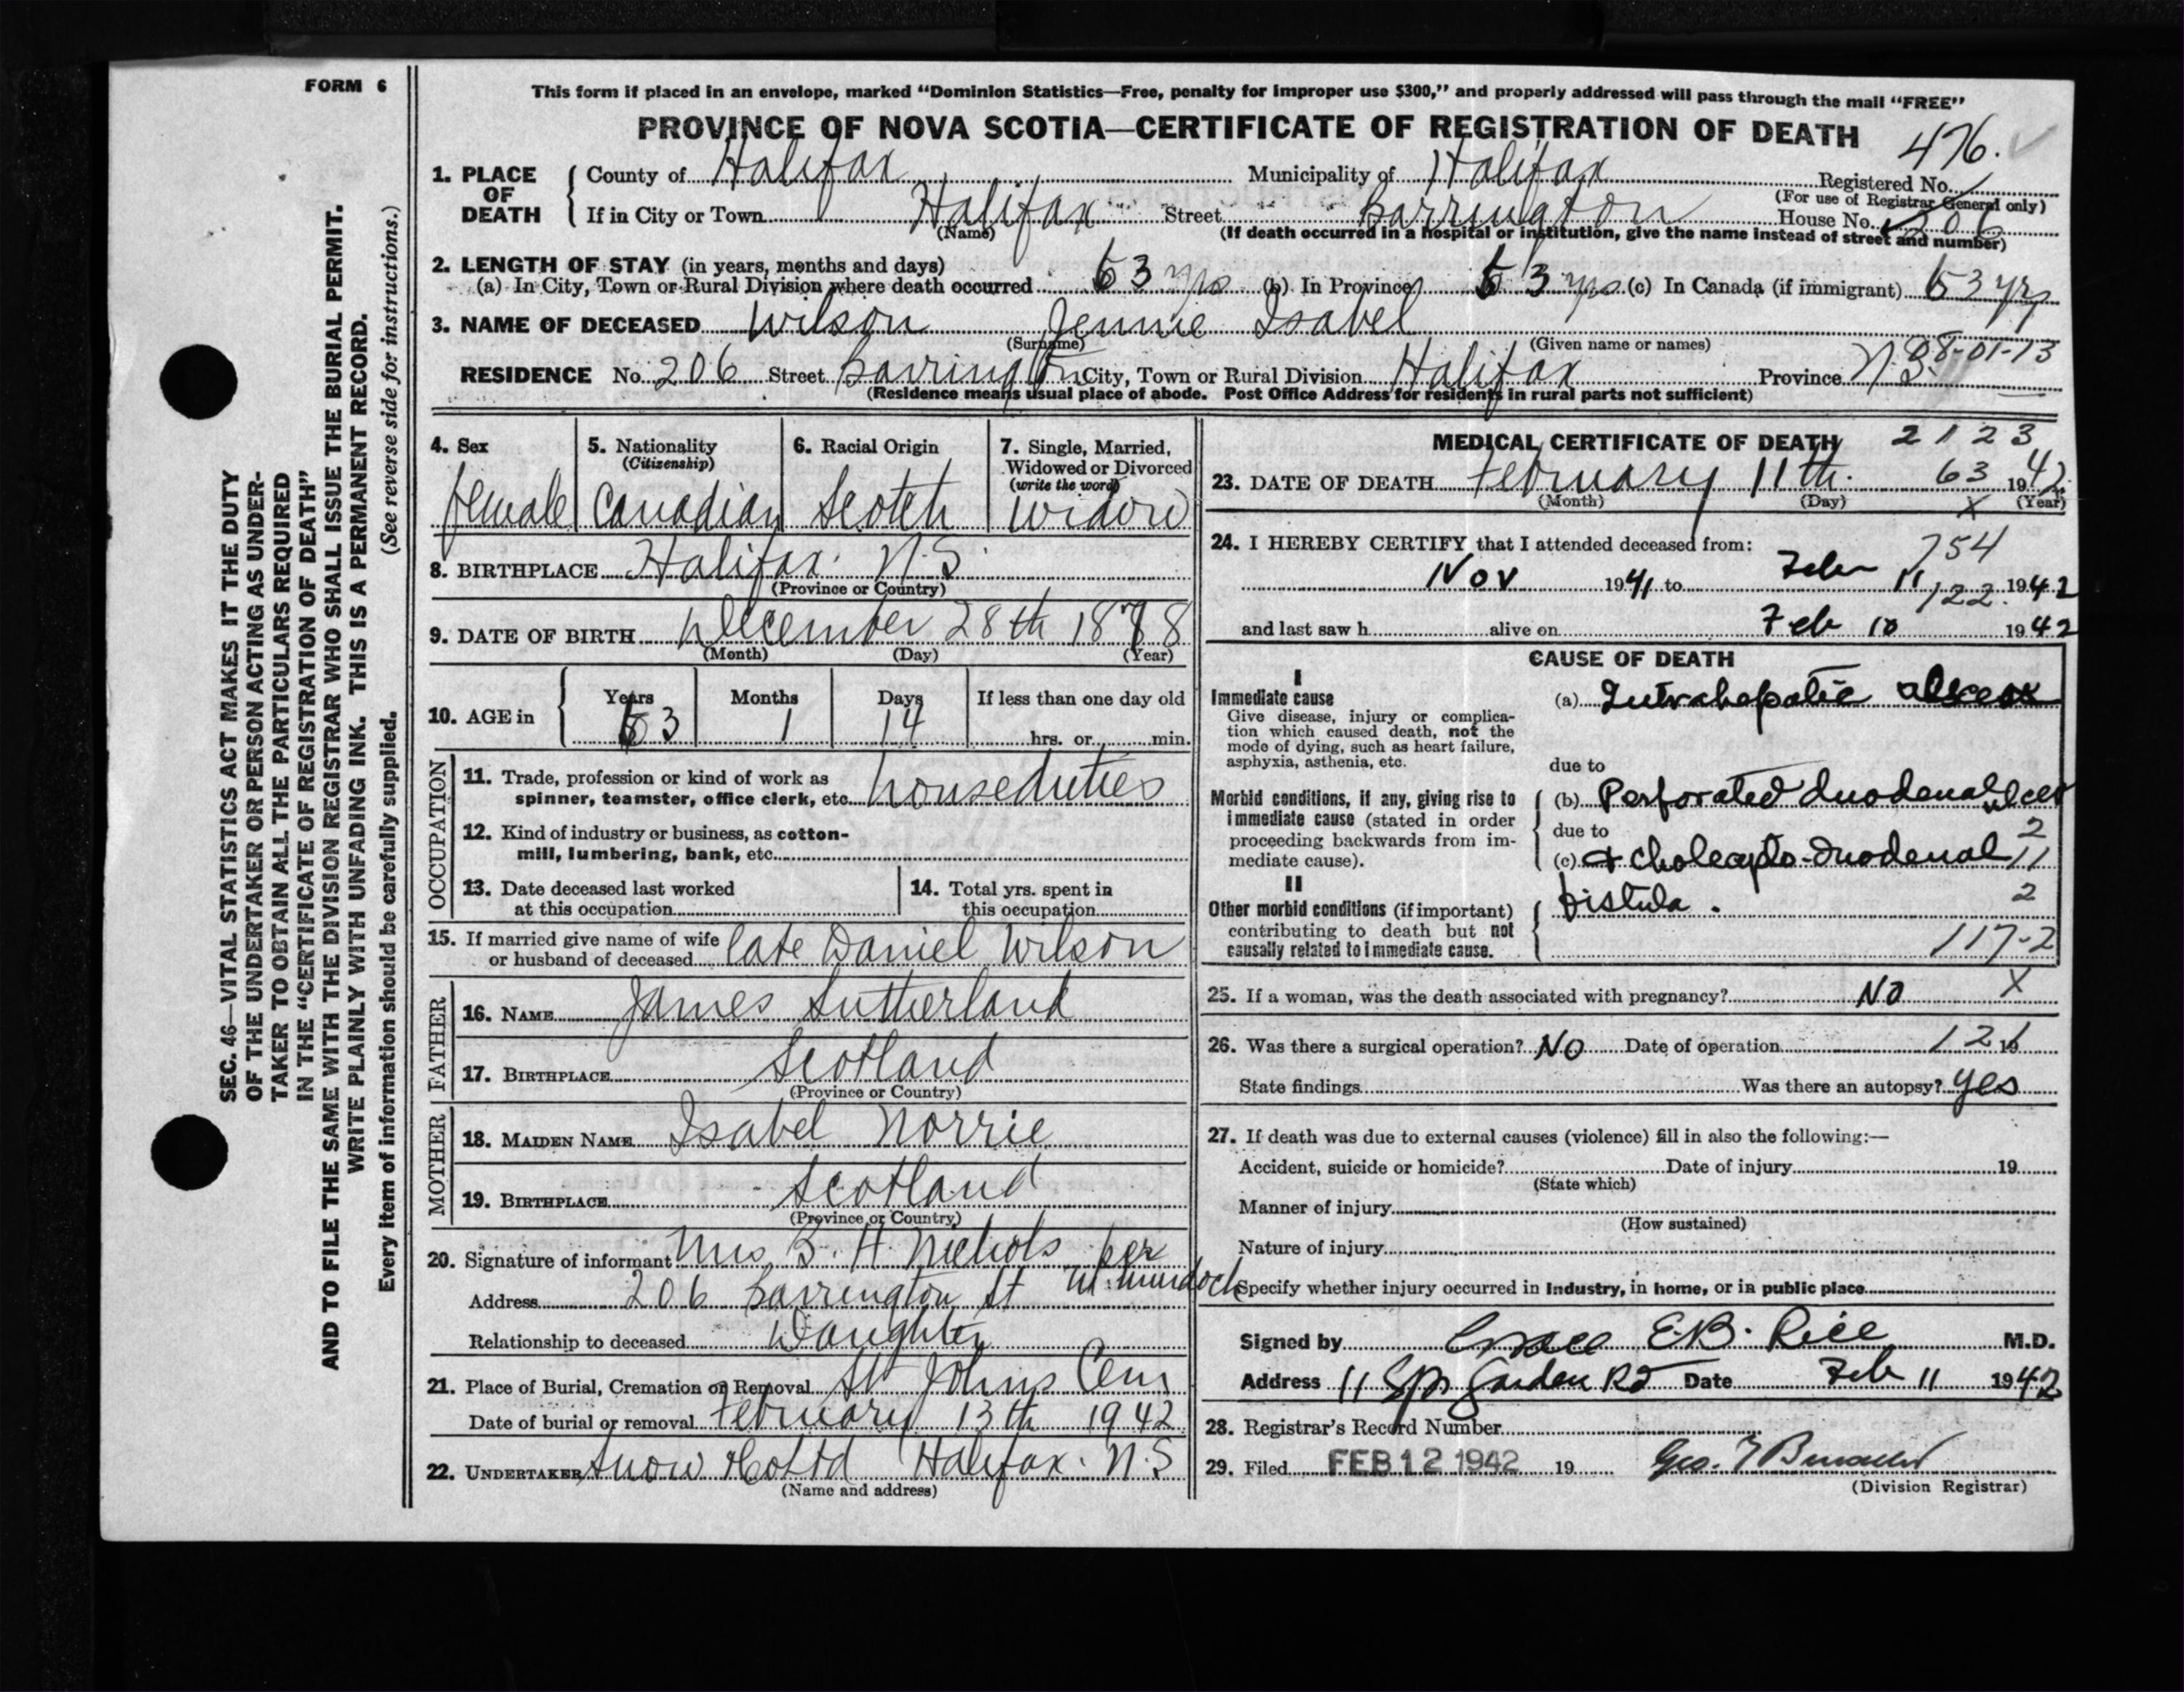 FORM 6
SEC. 46—VITAL STATISTICS ACT MAKES IT THE DUTY
OF THE UNDERTAKER OR PERSON ACTING AS UNDER-
TAKER TO OBTAIN ALL THE PARTICULARS REQUIRED
IN THE "CERTIFICATE OF REGISTRATION OF DEATH"
AND TO FILE THE SAME WITH THE DIVISION REGISTRAR WHO SHALL ISSUE THE BURIAL PERMIT.
WRITE PLAINLY WITH UNFADING INK. THIS IS A PERMANENT RECORD.
Every item of information should be carefully supplied. (See reverse side for instructions.)
This form if placed in an envelope, marked "Dominion Statistics—Free, penalty for improper use $300," and properly addressed will pass through the mail "FREE"
PROVINCE OF NOVA SCOTIA—CERTIFICATE OF REGISTRATION OF DEATH
476.
1. PLACE OF DEATH County of Halifax Municipality of Halifax Registered No.
(For use of Registrar General only)
If in City or Town Halifax Street Barrington House No. 206
(Name) (If death occurred in a hospital or institution, give the name instead of street and number)
2. LENGTH OF STAY (in years, months and days)
(a) In City, Town or Rural Division where death occurred 53 yrs (b) In Province 53 yrs (c) In Canada (if immigrant) 53 yrs
3. NAME OF DECEASED Wilson Jennie Isabel
(Surname) (Given name or names)
08-01-13
RESIDENCE No. 206 Street Barrington City, Town or Rural Division Halifax Province N.S.
(Residence means usual place of abode. Post Office Address for residents in rural parts not sufficient)
4. Sex 5. Nationality 6. Racial Origin 7. Single, Married,
(Citizenship) Widowed or Divorced
(write the word)
female Canadian Scotch Widow
8. BIRTHPLACE Halifax. N.S.
(Province or Country)
9. DATE OF BIRTH December 28th 1888
(Month) (Day) (Year)
Years Months Days If less than one day old
10. AGE in 53 1 14 hrs. or min.
OCCUPATION
11. Trade, profession or kind of work as
spinner, teamster, office clerk, etc. houseduties
12. Kind of industry or business, as cotton-
mill, lumbering, bank, etc.
13. Date deceased last worked
at this occupation
14. Total yrs. spent in
this occupation
15. If married give name of wife
or husband of deceased late Daniel Wilson
FATHER
16. NAME James Sutherland
17. BIRTHPLACE Scotland
(Province or Country)
MOTHER
18. MAIDEN NAME Isabel Norrie
19. BIRTHPLACE Scotland
(Province or Country)
20. Signature of informant Mrs. B. H. Nichols per
M. Murdoch
Address 206 Barrington St
Relationship to deceased Daughter
21. Place of Burial, Cremation or Removal St Johns Cem
Date of burial or removal February 13th 1942
22. UNDERTAKER Snow & Co Ltd Halifax. N.S
(Name and address)
MEDICAL CERTIFICATE OF DEATH 2123
23. DATE OF DEATH February 11th. 63 1942
(Month) (Day) X (Year)
24. I HEREBY CERTIFY that I attended deceased from:
754
Nov 1941 to Feb 11 1942
122.
and last saw h alive on Feb 10 1942
CAUSE OF DEATH
I
Immediate cause
Give disease, injury or complica-
tion which caused death, not the
mode of dying, such as heart failure,
asphyxia, asthenia, etc.
(a) Intrahepatic abscess
due to
Morbid conditions, if any, giving rise to
immediate cause (stated in order
proceeding backwards from im-
mediate cause).
(b) Perforated duodenal ulcer
due to 2
(c) & Cholecysto-duodenal 11
II
Other morbid conditions (if important)
contributing to death but not
causally related to immediate cause.
fistula. 2
117-2
25. If a woman, was the death associated with pregnancy? NO X
26. Was there a surgical operation? NO Date of operation 19
State findings Was there an autopsy? yes
27. If death was due to external causes (violence) fill in also the following:—
Accident, suicide or homicide? Date of injury 19
(State which)
Manner of injury
(How sustained)
Nature of injury
Specify whether injury occurred in Industry, in home, or in public place
Signed by Grace E.B. Rice M.D.
Address 11 Spr Garden Rd Date Feb 11 1942
28. Registrar's Record Number
29. Filed FEB 12 1942 19 Geo.
(Division Registrar)